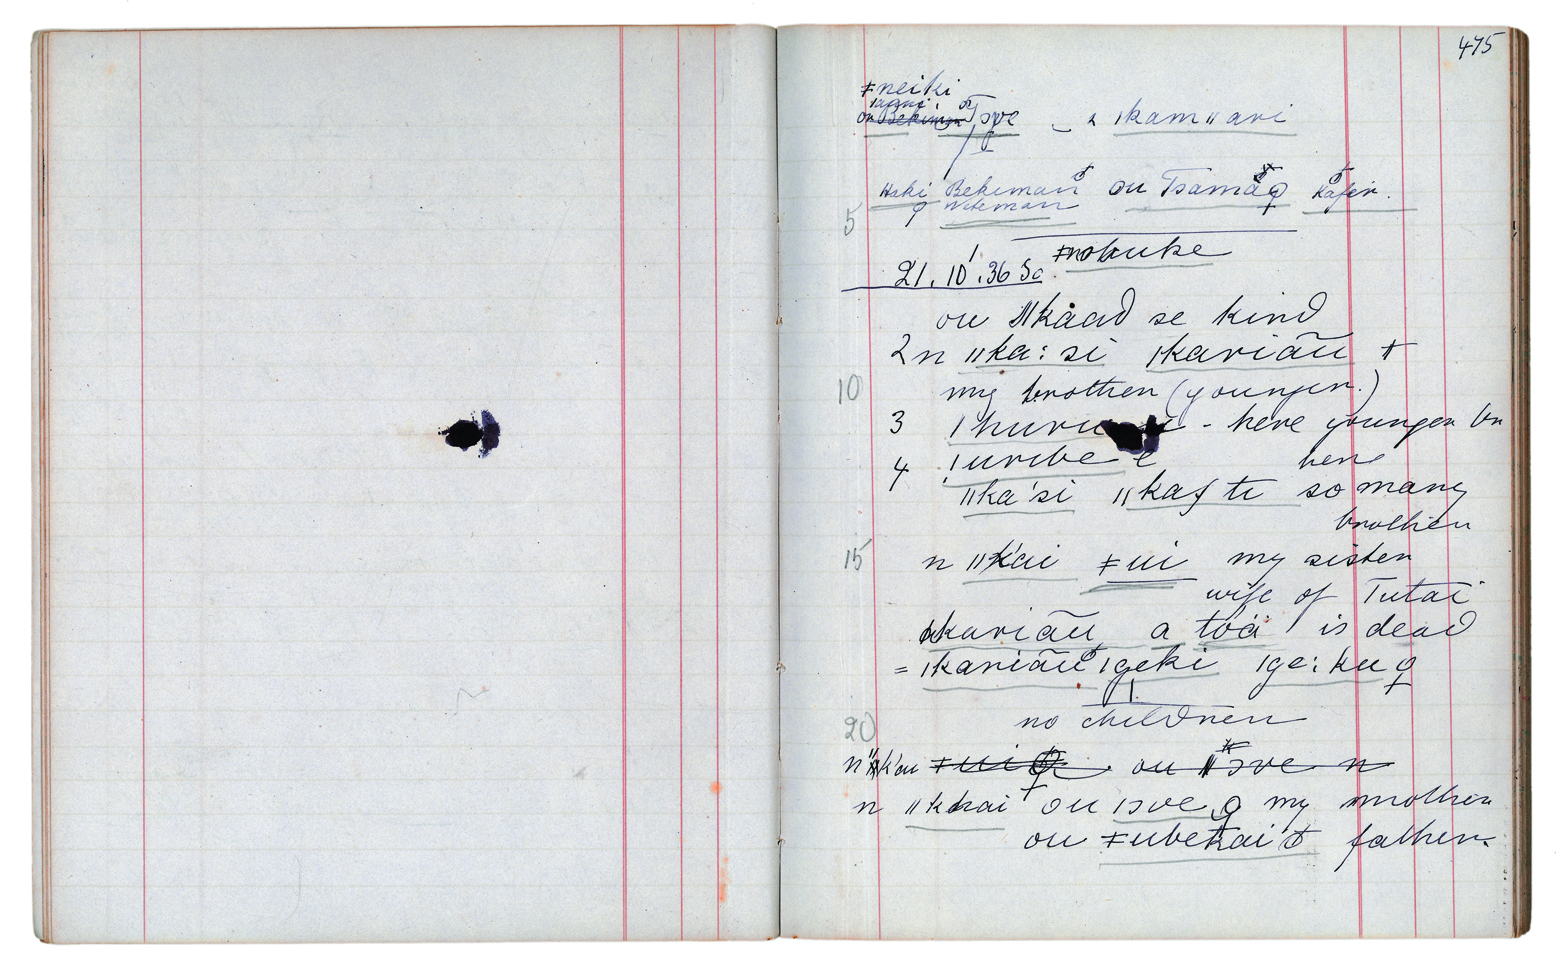 475
ǂneiki
ou Bekiman ♂ Tsve ♀ ǀkamǁari
Haki Bekiman ♂ ou Tsamaq ♀ ♂ Kafir.
♀ Witeman
5
ǂnobuke
21.10.36 Sc
ou ǁkaad se kind
2 n ǁka:si ǀkariãu ♂
10 my brother (younger.)
3 ǀhuru - here younger br
4 ǃuribe e here
ǁka'si ǁkaf te so many
brother
15 n ǁk'ai ǂui my sister
wife of Tutai
ǀkariãu a toä is dead
= ǀkariãu ♂ ǀgeki ǀge:ku ♀
20 no children
n ǁk'ai ǂui ♀ ou ǀsve n
n ǁkhai ou ǀsve ♀ my mother
ou ǂubekai ♂ father.